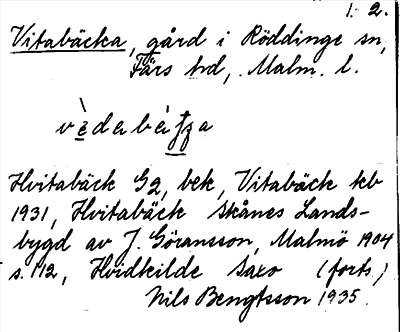 1. 2.
Vitabäcka, gård i Röddinge sn,
Färs hd, Malm. l.
Hvitabäck G2, bek, Vitabäck kb
1931, Hvitabäck Skånes Lands-
bygd av J. Göransson, Malmö 1904
s. 112, Hvidkilde Saxo (forts.)
Nils Bengtsson 1935.